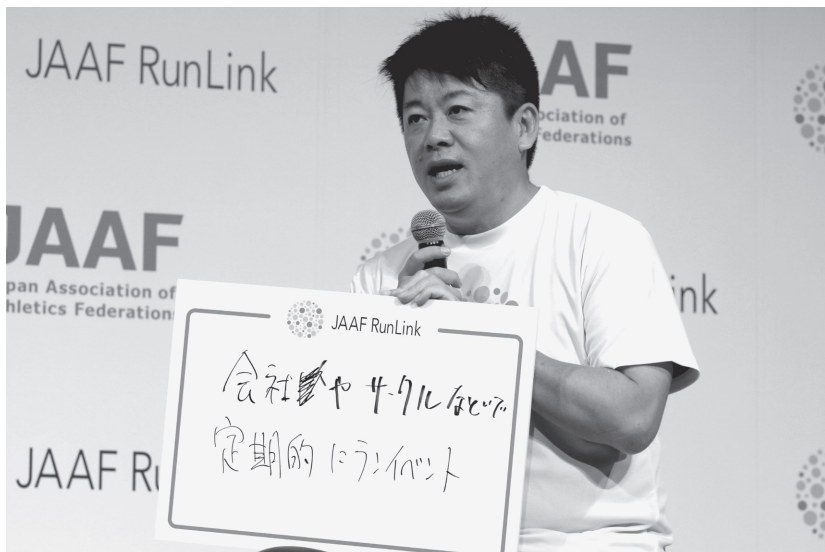 JAAF RunLink
AF
ociation of
ederations
JAAF
pan Association of
hletics Federation
ink
JAAF RunLink
会社や サークルなどで
定期的にランイベント
JAAF Ru